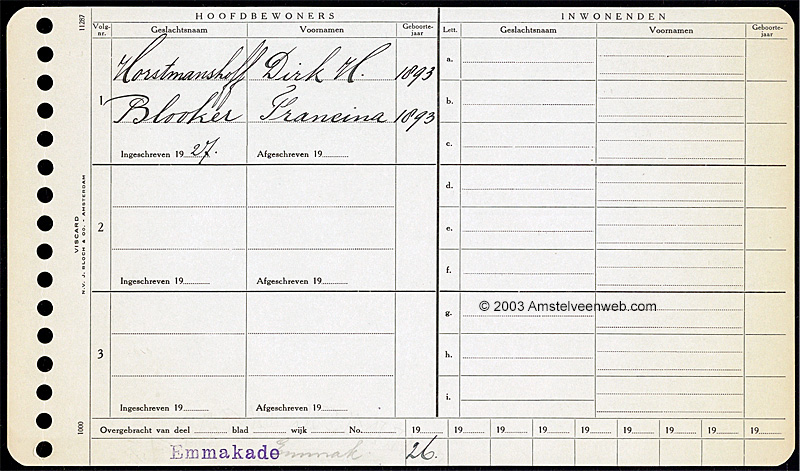 HOOFDBEWONERS
INWONENDEN
11287
Volg-nr. Geslachtsnaam Voornamen Geboorte-jaar
Lett. Geslachtsnaam Voornamen Geboorte-jaar
1
Horstmanshoff Dirk H. 1893
Blooker Francina 1893
Ingeschreven 1927. Afgeschreven 19
2
Ingeschreven 19 Afgeschreven 19
3
Ingeschreven 19 Afgeschreven 19
a.
b.
c.
d.
e.
f.
g.
h.
i.
© 2003 Amstelveenweb.com
VISCARD
N.V. J. BLOCH & CO. - AMSTERDAM
1000
Overgebracht van deel blad wijk No. 19 19 19 19 19 19 19 19 19
Emmakade Emmak 26.